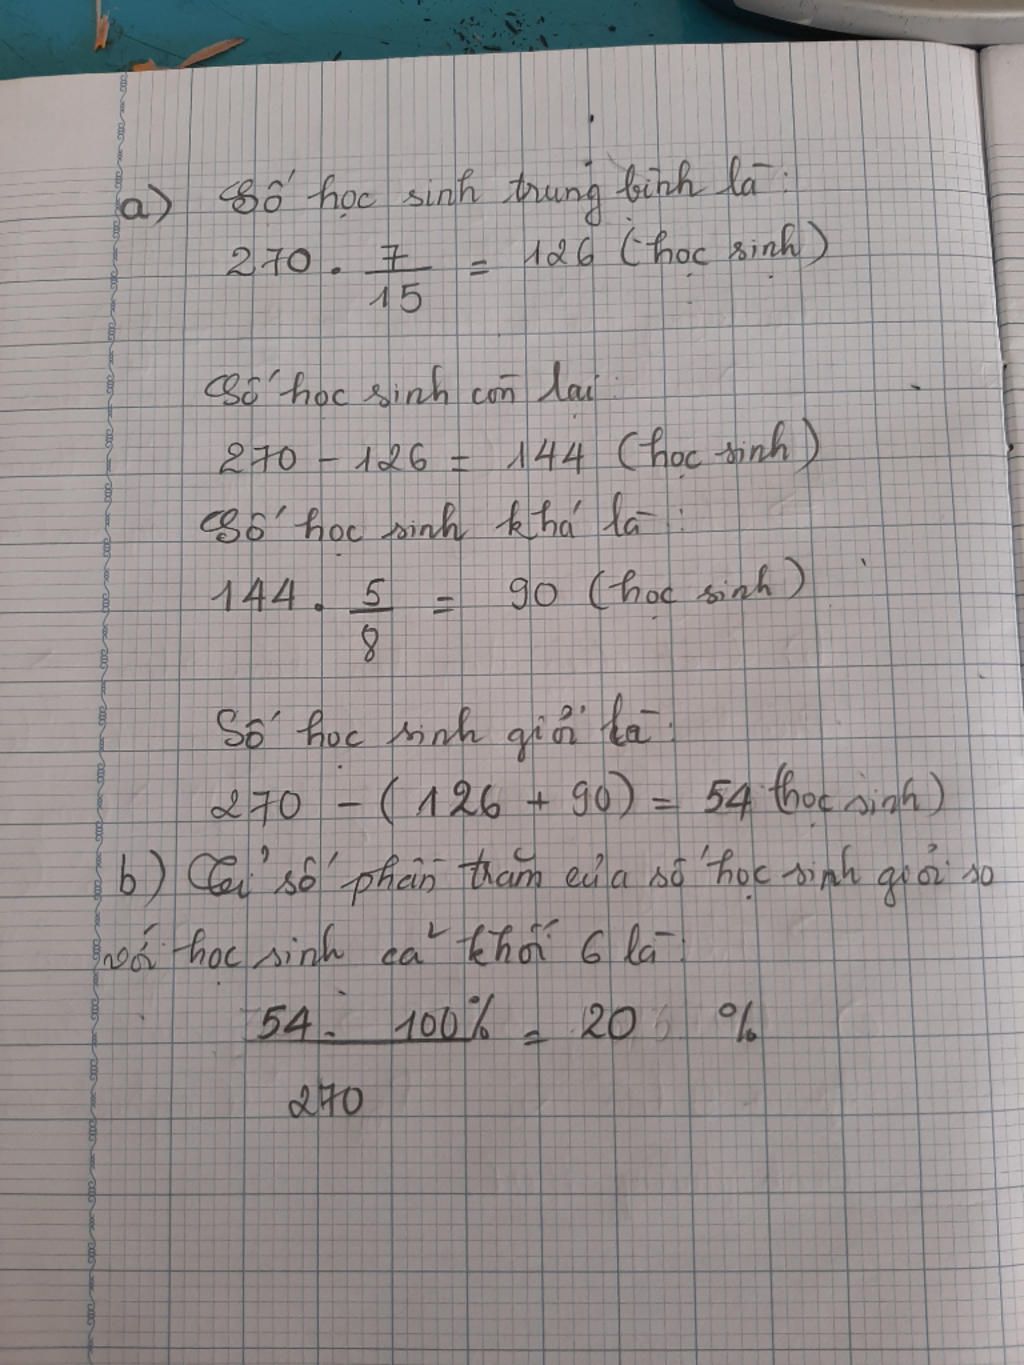 a) Số học sinh trung bình là:
270 . 7/15 = 126 (học sinh)
Số học sinh còn lại:
270 - 126 = 144 (học sinh)
Số học sinh khá là:
144 . 5/8 = 90 (học sinh)
Số học sinh giỏi là:
270 - (126 + 90) = 54 (học sinh)
b) Tỉ số phần trăm của số học sinh giỏi so
với học sinh cả khối 6 là:
54 . 100% / 270 = 20 %